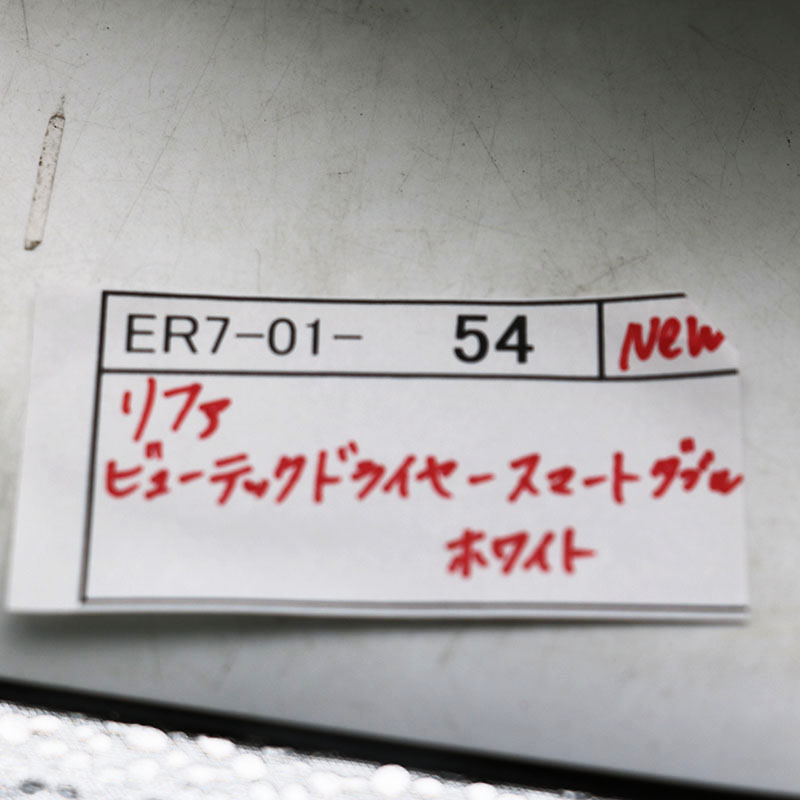 ER7-01- 54 New
リファ
ビューテックドライヤースマートダブル
ホワイト